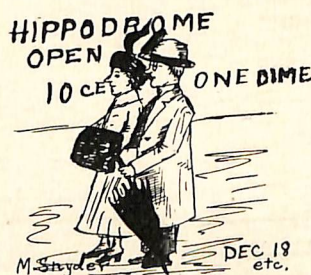 HIPPODROME
OPEN
10 CE ONE DIME
M. Snyder
DEC 18
etc.